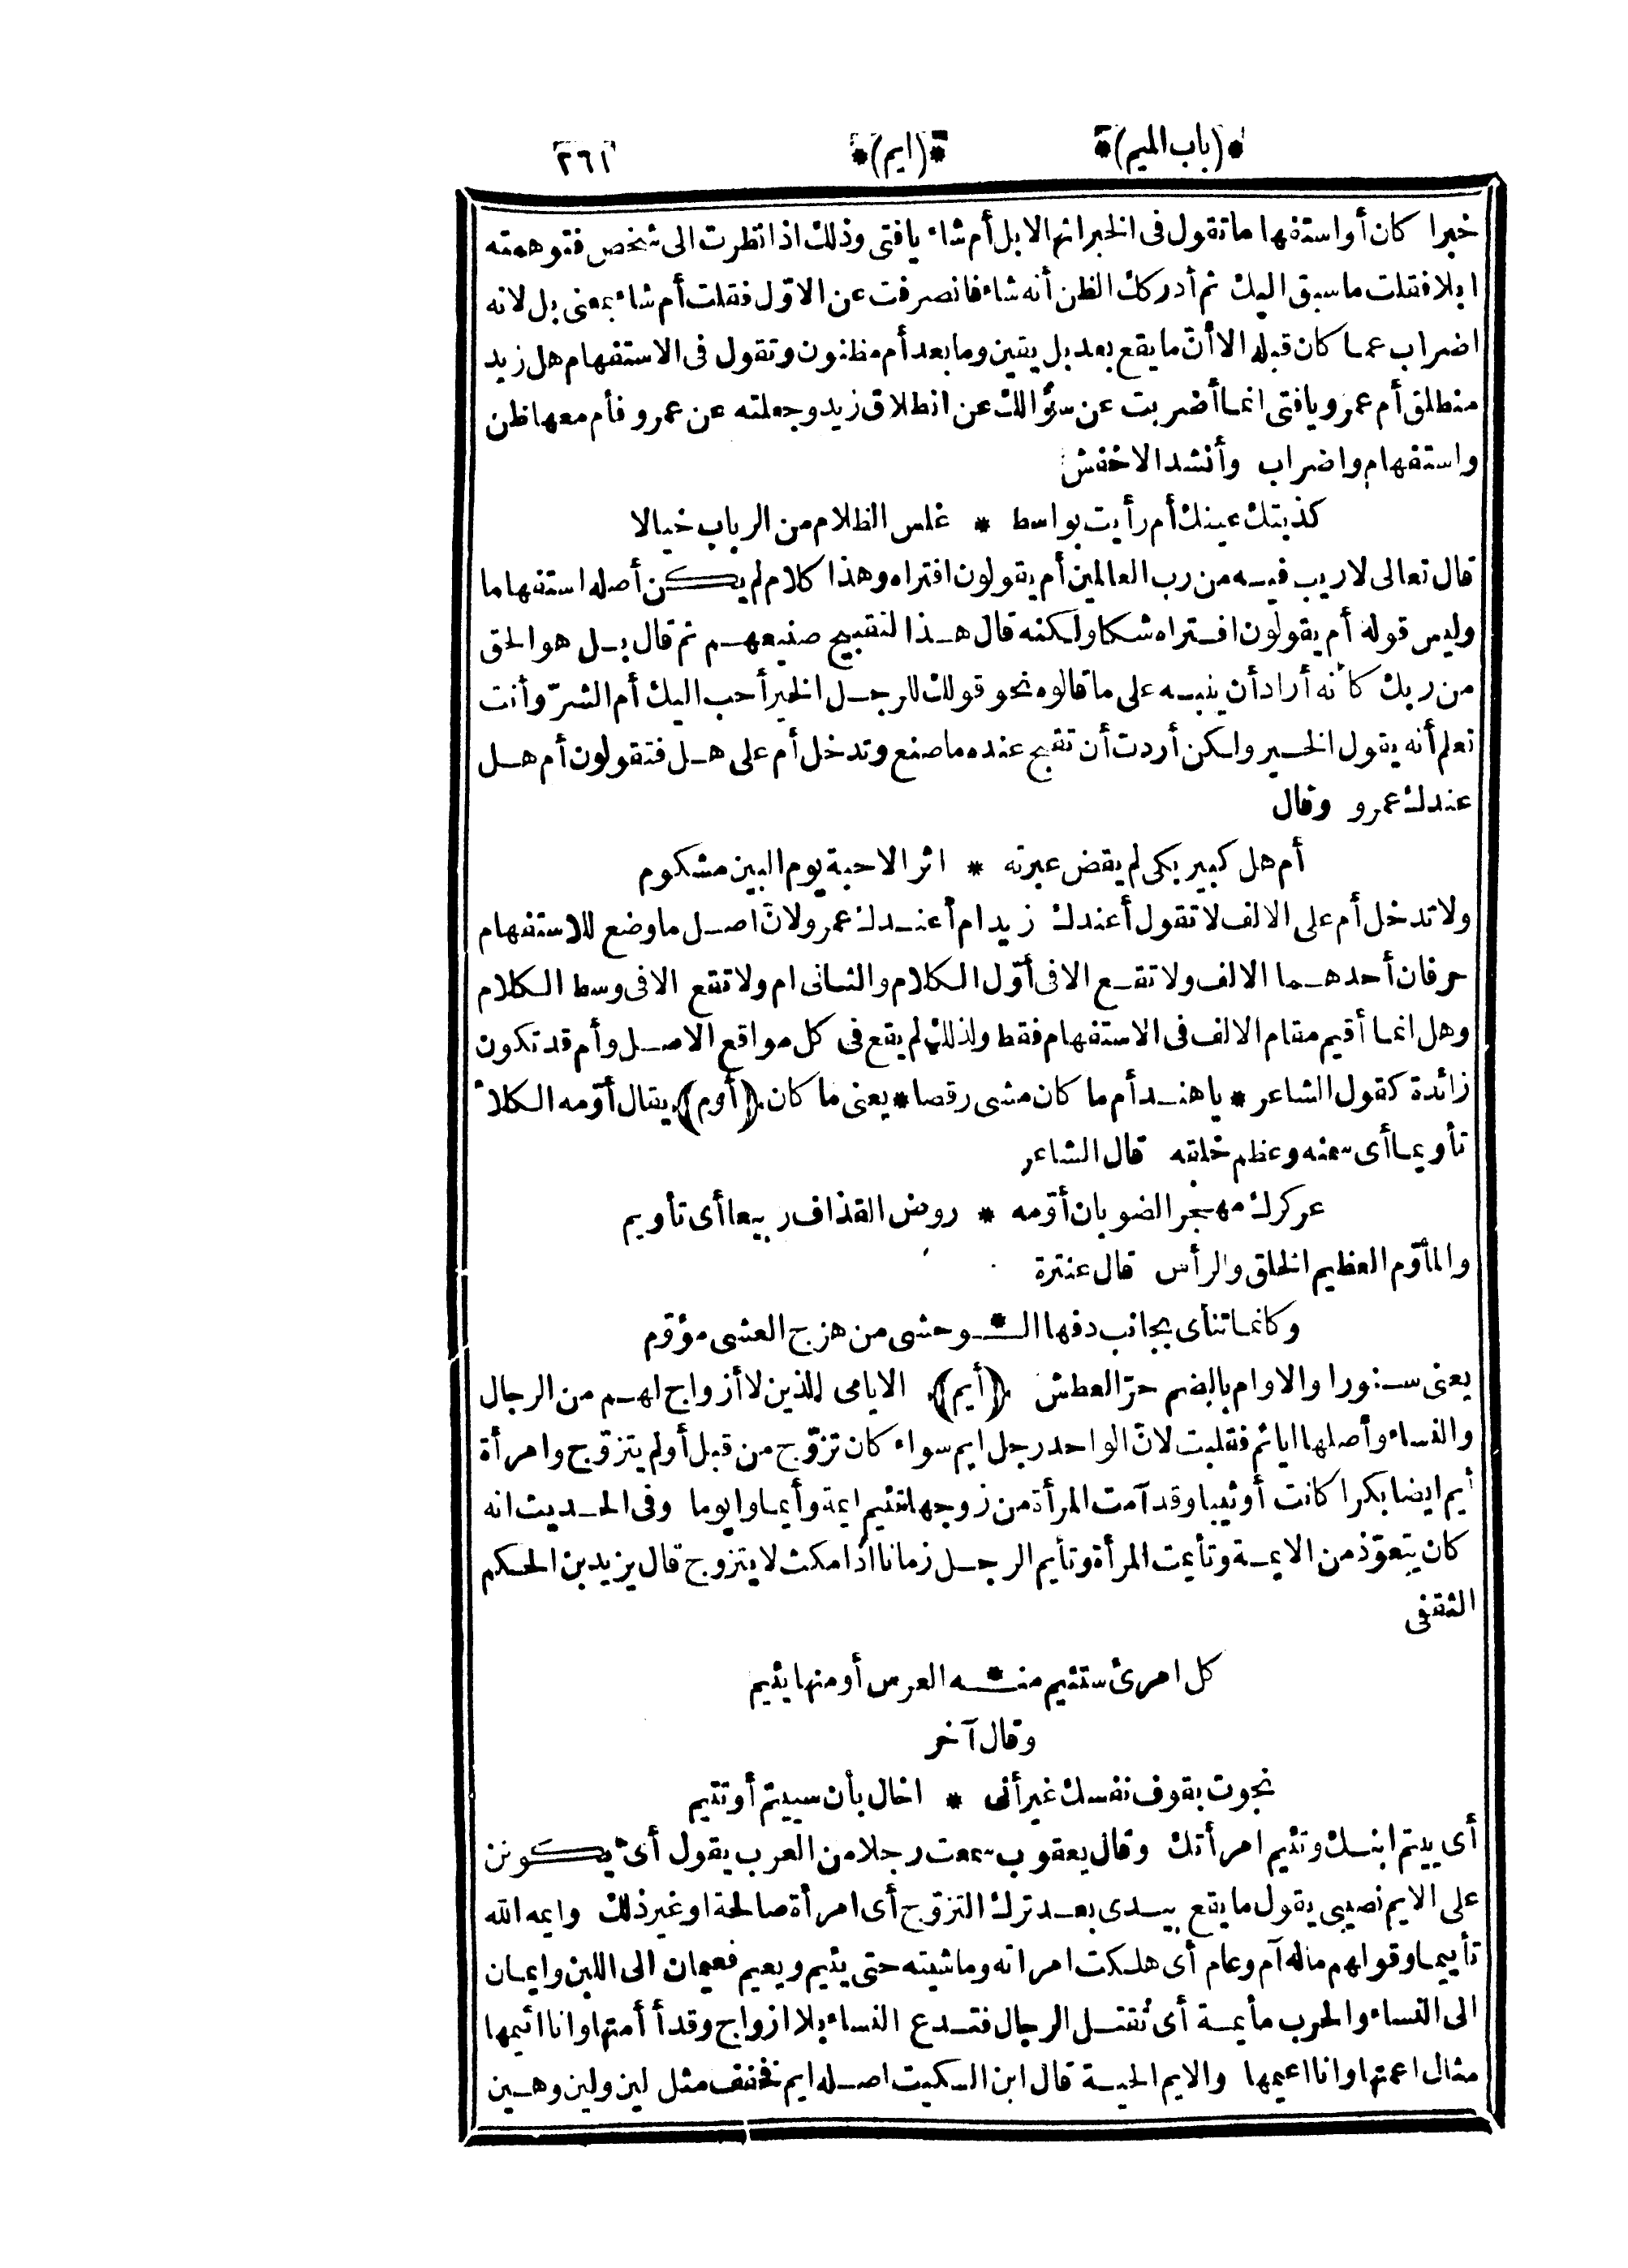 *(باب الميم)* *(ايم)* ٢٦١
خبرا كان أو استفهاما تقول فى الخبر انها لابل أم شاء يافتى وذلك اذا نظرت الى شخص فتوهمته
ابلا فقلت ما سبق اليك ثم أدركك الظن أنه شاء فانصرفت عن الاوّل فقلت أم شاء بمعنى بل لانه
اضراب عما كان قبله الا أنّ ما يقع بعد بل يقين وما بعد أم مظنون وتقول فى الاستفهام هل زيد
منطلق أم عمرو يافتى انما أضربت عن سؤالك عن انطلاق زيد وجعلته عن عمرو فأم معها ظن
واستفهام واضراب وأنشد الاخفش
كذبتك عينك أم رأيت بواسط * غلس الظلام من الرباب خيالا
قال تعالى لا ريب فيه من رب العالمين أم يقولون افتراه وهذا كلام لم يكن أصله استفهاما
وليس قوله أم يقولون افتراه شكا ولكنه قال هذا لتقبيح صنيعهم ثم قال بل هو الحق
من ربك كأنه أراد أن ينبه على ما قالوه نحو قولك للرجل الخير أحب اليك أم الشرّ وأنت
تعلم أنه يقول الخير ولكن أردت أن تقبح عنده ما صنع وتدخل أم على هل فتقولون أم هل
عندك عمرو وقال
أم هل كبير بكى لم يقض عبرته * اثر الاحبة يوم البين مشكوم
ولا تدخل أم على الالف لا تقول أعندك زيد ام أعندك عمرو لانّ اصل ما وضع للاستفهام
حرفان أحدهما الالف ولا تقع الا فى أوّل الكلام والثانى ام ولا تقع الا فى وسط الكلام
وهل انما أقيم مقام الالف فى الاستفهام فقط ولذلك لم يقع فى كل مواقع الاصل وأم قد تكون
زائدة كقول الشاعر * يا هند أم ما كان مشى رقصا * يعنى ما كان (أوم) يقال أوّمه الكلأ
تأويما أى سمنه وعظم خلقه قال الشاعر
عركرك مهجر الضوبان أوّمه * روض القذاف ربيعا أى تأويم
والمأوّم العظيم الخلق والرأس قال عنترة
وكانما تنأى بجانب دفها الـ * ـوحشى من هزج العشى مؤوّم
يعنى سنورا والاوام بالضم حرّ العطش (أيم) الايامى الذين لا أزواج لهم من الرجال
والنساء وأصلها ايائم فقلبت لانّ الواحد رجل ايم سواء كان تزوّج من قبل أو لم يتزوّج وامرأة
أيم ايضا بكرا كانت أو ثيبا وقد آمت المرأة من زوجها تئيم ايمة وأيما وايوما وفى الحديث انه
كان يتعوّذ من الايمة وتأيمت المرأة وتأيم الرجل زمانا اذا مكث لا يتزوج قال يزيد بن الحكم
الثقفى
كل امرئ ستئيم منـ * ـه العرس أو منها يئيم
وقال آخر
نجوت بقوف نفسك غير أنى * اخال بأن سييتم أو تئيم
أى ييتم ابنك وتئيم امرأتك وقال يعقوب سمعت رجلا من العرب يقول أىّ يكونن
على الايم نصيبى يقول ما يقع بيدى بعد ترك التزوّج أى امرأة صالحة او غير ذلك وايمه الله
تأييما وقولهم ماله آم وعام أى هلكت امراته وماشيته حتى يئيم ويعيم فعيمان الى اللبن وايمان
الى النساء والحرب مأيمة أى تقتل الرجال فتدع النساء بلا ازواج وقد أأمتها وانا ائيمها
مثال اعمتها وانا اعيمها والايم الحية قال ابن السكيت اصله ايم فخفف مثل لين ولين وهين